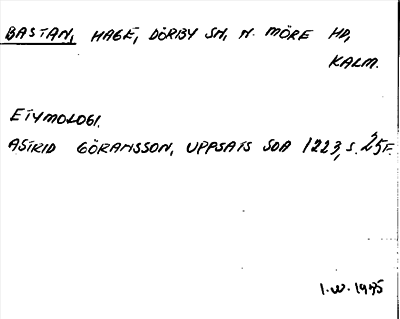 BASTAN, HAGE, DÖRBY SN, N. MÖRE HD,
KALM.
ETYMOLOGI.
ASTRID GÖRANSSON, UPPSATS SOA 1223, S. 25 F.
I.W. 1975